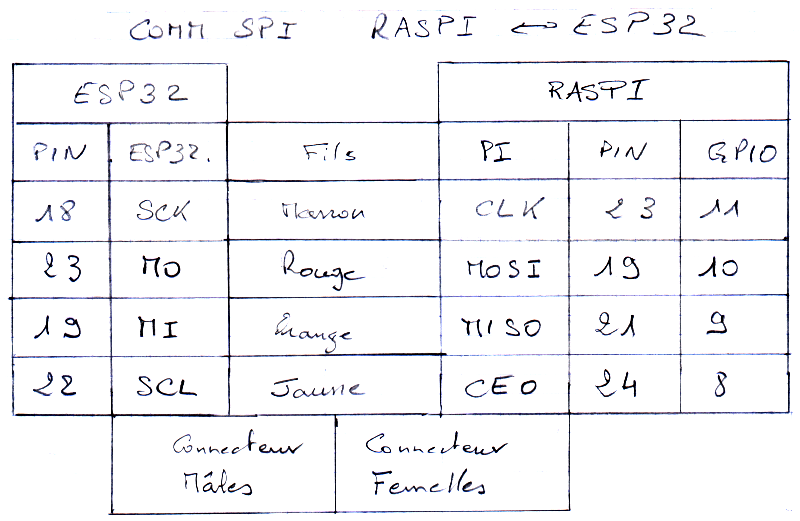 COMM SPI RASPI ↔ ESP32
ESP32 RASPI
PIN ESP32. Fils PI PIN GPIO
18 SCK Marron CLK 23 11
23 MO Rouge MOSI 19 10
19 MI Orange MISO 21 9
22 SCL Jaune CEO 24 8
Connecteur Connecteur
Mâles Femelles